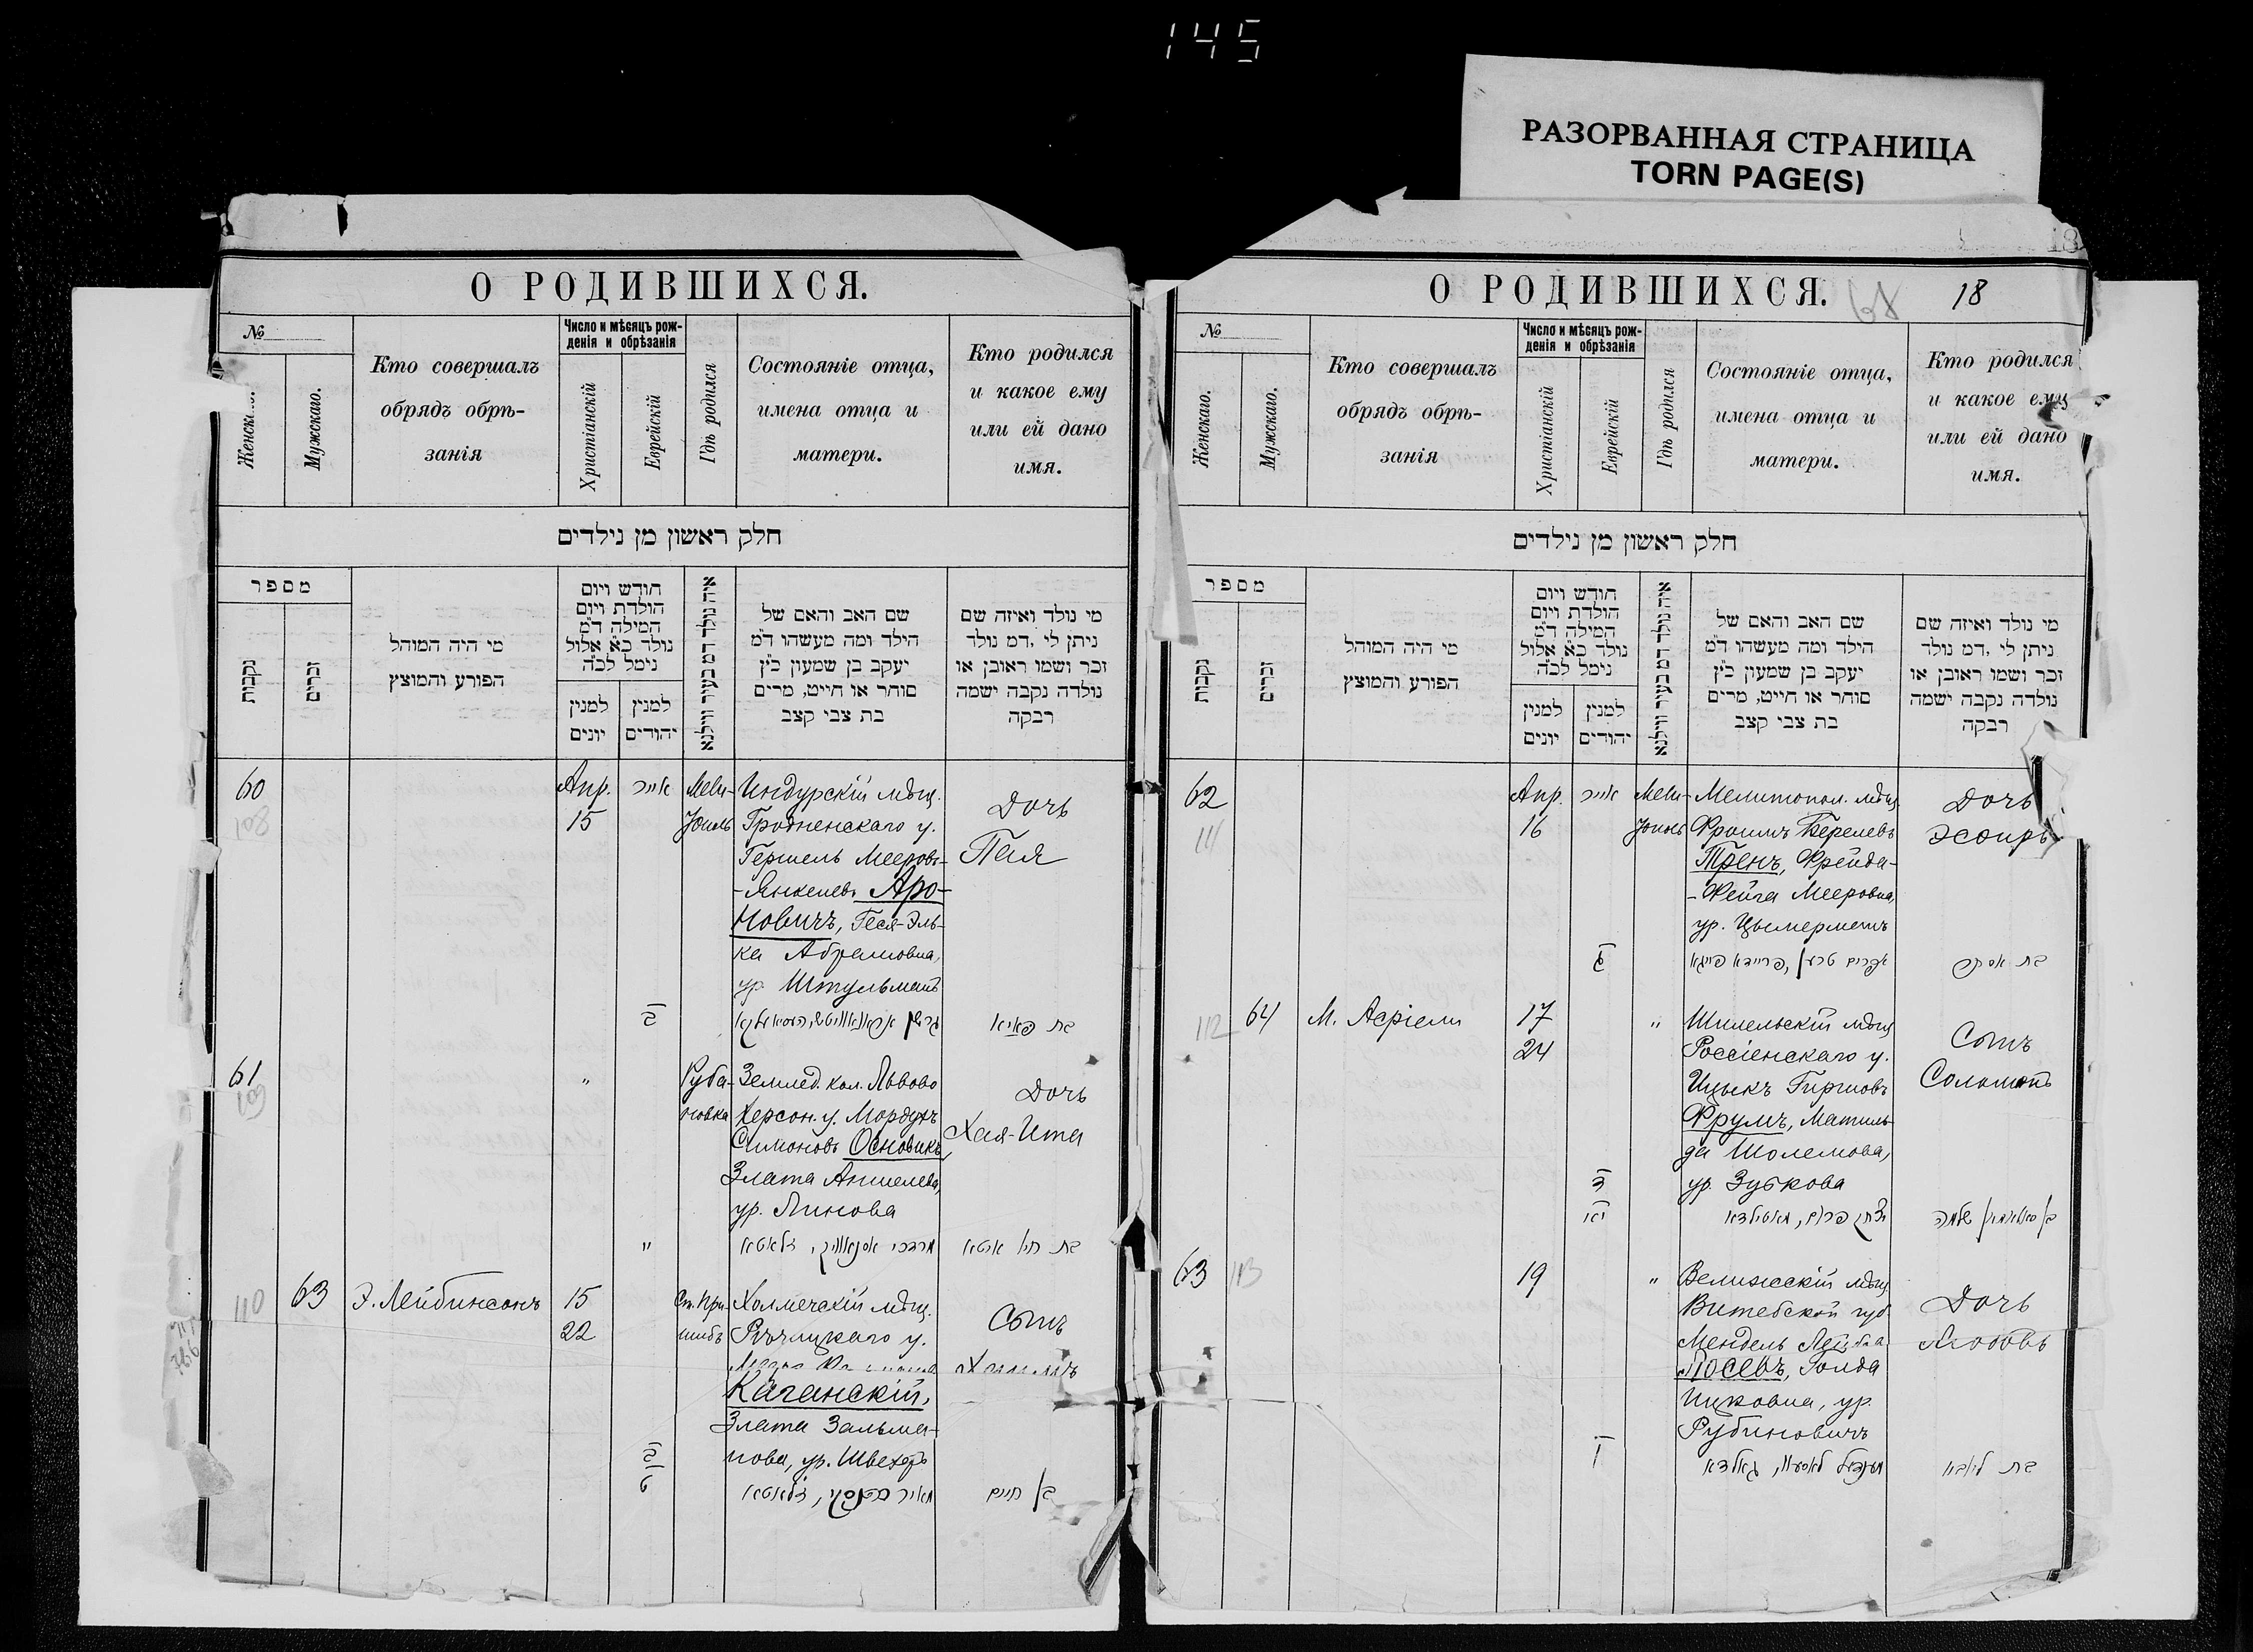 145
РАЗОРВАННАЯ СТРАНИЦА
TORN PAGE(S)
О РОДИВШИХСЯ.
№
Женска
Мужскаго.
Кто совершалъ
обрядъ обрѣ-
занія
Число и мѣсяцъ рож-
денія и обрѣзанія
Христіанскій
Еврейскій
Гдѣ родился
Состояніе отца,
имена отца и
матери.
Кто родился
и какое ему
или ей дано
имя.
חלק ראשון מן נילדים
מספר
נקבות
זכרים
מי היה המוהל
הפורע והמוצץ
חודש ויום
הולדת ויום
המילה ד״מ
נולד כ״א אלול
נימל לכ״ה
למנין
יונים
למנין
יהודים
איה נולד דמ בעיר ווילנא
שם האב והאם של
הילד ומה מעשהו ד״מ
יעקב בן שמעון כ״ץ
סוחר או חייט, מרים
בת צבי קצב
מי נולד ואיזה שם
ניתן לי ,דמ נולד
זכר ושמו ראובן או
נולדה נקבה ישמה
רבקה
60
108
Апр.
15
אייר
Мели-
тополь
Индурскій мѣщ.
Гродненскаго у.
Гершель Мееровъ-
-Янкелевъ Аро-
новичъ, Геся-Эль-
ка Абрамовна,
ур. Штульманъ
Дочь
Пая
בת פאיא
61
109
"
Руба-
новка
Землед. кол. Львово
Херсон. у. Мордухъ
Симоновъ Основикъ,
Злата Аншелева,
ур. Линова
Дочь
Хая-Ита
"
מרדכי אסנאוויק, זלאטא
בת חי׳ איטא
110
63
Э. Лейбинсонъ
15
22
Ст. При-
шибъ
Холмечскій мѣщ.
Рѣчицкаго у.
Каганскій,
Злата Зальма-
нова, ур. Швехеръ
Сынъ
בן חיים
О РОДИВШИХСЯ.
68
18
№
Женскаго.
Мужскаго.
Кто совершалъ
обрядъ обрѣ-
занія
Число и мѣсяцъ рож-
денія и обрѣзанія
Христіанскій
Еврейскій
Гдѣ родился
Состояніе отца,
имена отца и
матери.
Кто родился
и какое ему
или ей дано
имя.
חלק ראשון מן נילדים
מספר
נקבות
זכרים
מי היה המוהל
הפורע והמוצץ
חודש ויום
הולדת ויום
המילה ד״מ
נולד כ״א אלול
נימל לכ״ה
למנין
יונים
למנין
יהודים
איה נולד דמ בעיר ווילנא
שם האב והאם של
הילד ומה מעשהו ד״מ
יעקב בן שמעון כ״ץ
סוחר או חייט, מרים
בת צבי קצב
מי נולד ואיזה שם
ניתן לי ,דמ נולד
זכר ושמו ראובן או
נולדה נקבה ישמה
רבקה
62
111
Апр.
16
אייר
Мели-
тополь
Мелитопол. мѣщ.
Фроимъ Берелевъ
Тренъ, Фрейда-
-Фейга Мееровна,
ур. Цымерманъ
Дочь
Эсѳирь
ג
אפרים טרען, פריידא פייגא
בת אסתר
112
64
М. Асріели
17
24
"
Шилельскій мѣщ.
Россіенскаго у.
Ицыкъ Гиршовъ
Фрумъ, Матиль-
да Шолемова,
ур. Зубкова
Сынъ
Соломонъ
ד
יא
יצחק פרום, מאטילדא
63
113
19
"
Велижскій мѣщ.
Витебской губ.
Мендель
Лосевъ, Голда
Ицковна, ур.
Рубиновичъ
Дочь
Любовь
ו
מענדיל לאסעוו, גאלדא
בת ליובא